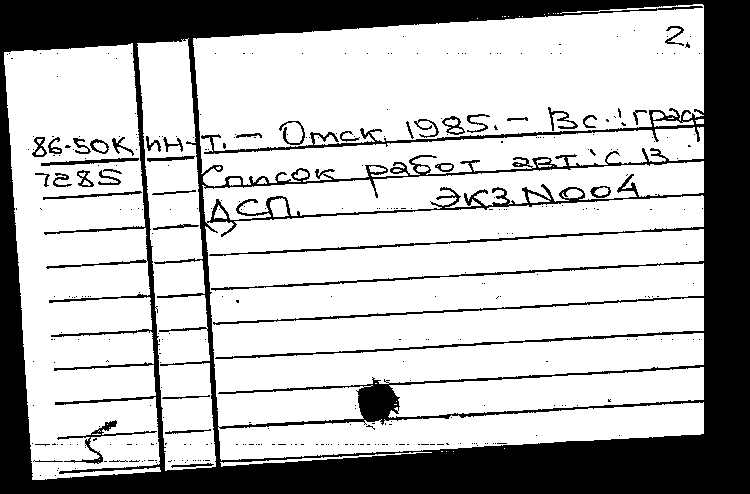 2.
86-50К ин-т. — Омск, 1985. — В с.: граф
7285 Список работ авт.: с 13
ДСП. Экз. N004
5